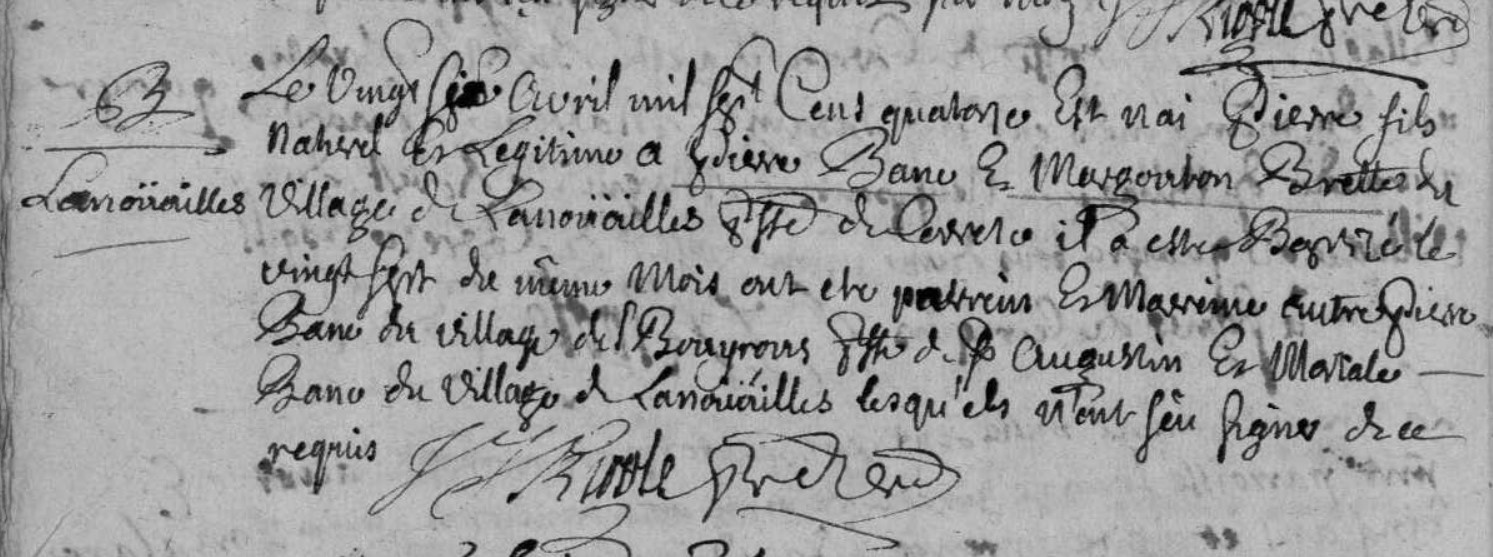 B
Lanoüailles
Le vingt six avril mil sept cens quatorze Est nai pierre fils
naturel Et Legitime a pierre Banc Et Margouton Brette du
village de Lanoüailles psse de il a este Baptizé le
vingt sept du méme mois ont ete parrein Et Marreine autre pierre
Banc du village de Bouyroux psse de St Augustin Et Marcale
Banc du village de Lanoüailles lesqu'els n'ont sçu signer de ce
requis